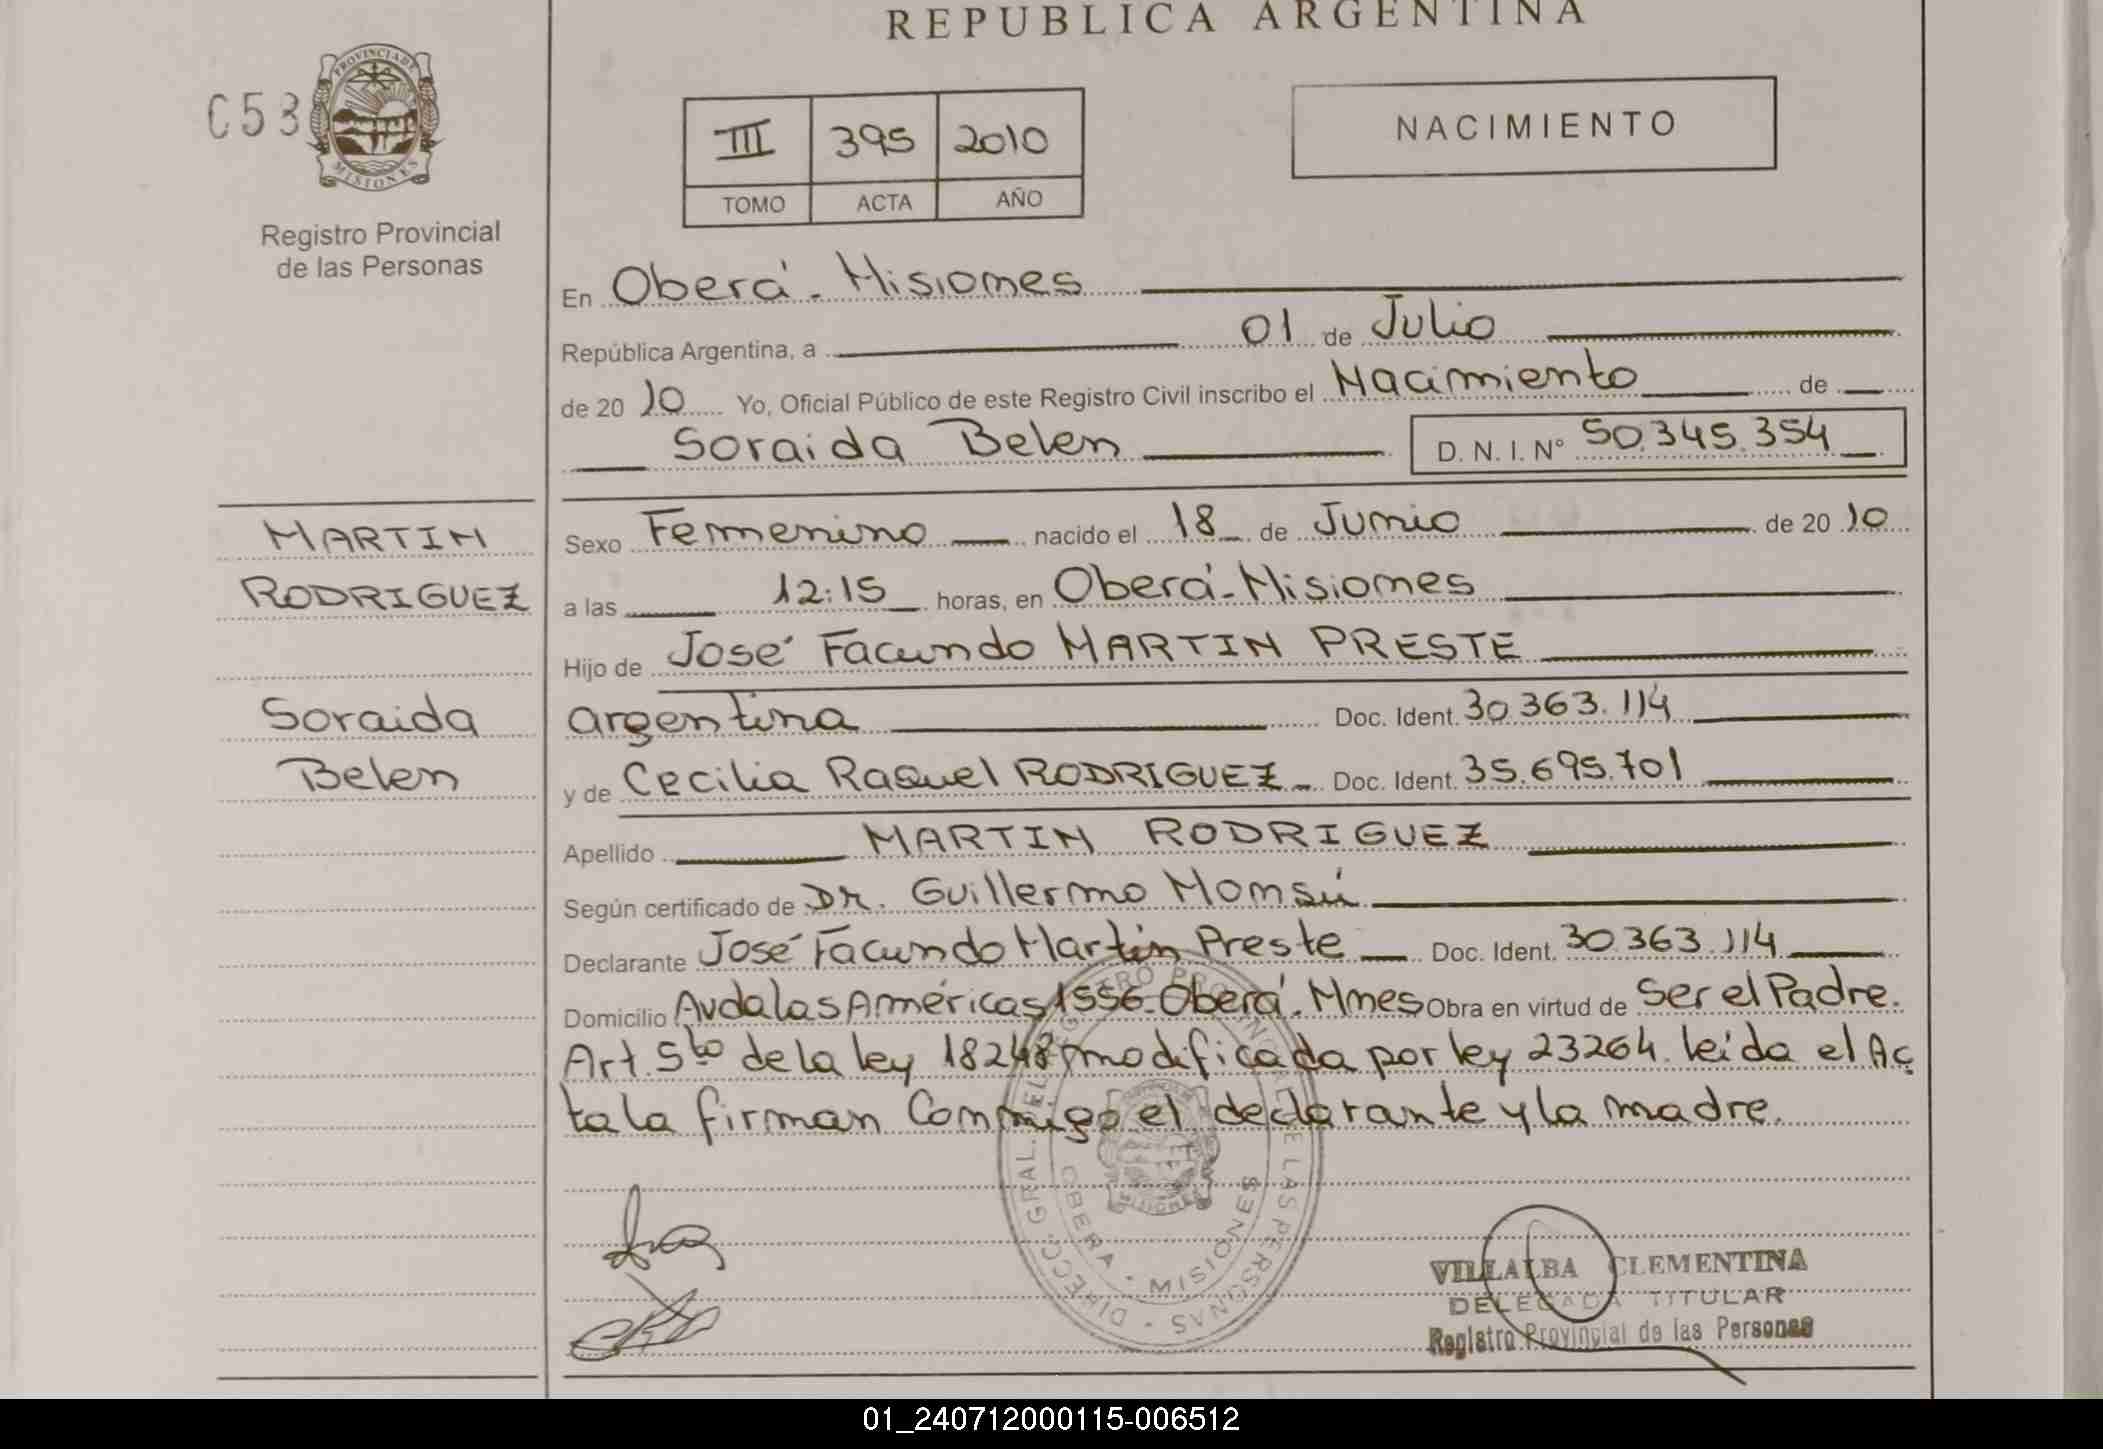 REPUBLICA ARGENTINA
C53
PROVINCIA DE
MISIONES
Registro Provincial
de las Personas
III 395 2010
TOMO ACTA AÑO
NACIMIENTO
En Oberá - Misiones
República Argentina, a 01 de Julio
de 2010 Yo, Oficial Público de este Registro Civil inscribo el Nacimiento de
Soraida Belen D. N. I. Nº 50.345.354
MARTIN
RODRIGUEZ
Soraida
Belen
Sexo Femenino nacido el 18 de Junio de 2010
a las 12:15 horas, en Oberá - Misiones
Hijo de José Facundo MARTIN PRESTE
argentina Doc. Ident. 30.363.114
y de Cecilia Raquel RODRIGUEZ Doc. Ident. 35.695.701
Apellido MARTIN RODRIGUEZ
Según certificado de Dr. Guillermo
Declarante José Facundo Martin Preste Doc. Ident. 30.363.114
Domicilio Avda las Américas 1556 - Oberá - Mnes Obra en virtud de Ser el Padre.
Art. 5to de la ley 18248 modificada por ley 23264. leída el Ac
ta la firman Conmigo el declarante y la madre.
DIRECC. GRAL. DEL REGISTRO PROVINCIAL DE LAS PERSONAS
OBERA - MISIONES
VILLALBA CLEMENTINA
DELEGADA TITULAR
Registro Provincial de las Personas
01_240712000115-006512